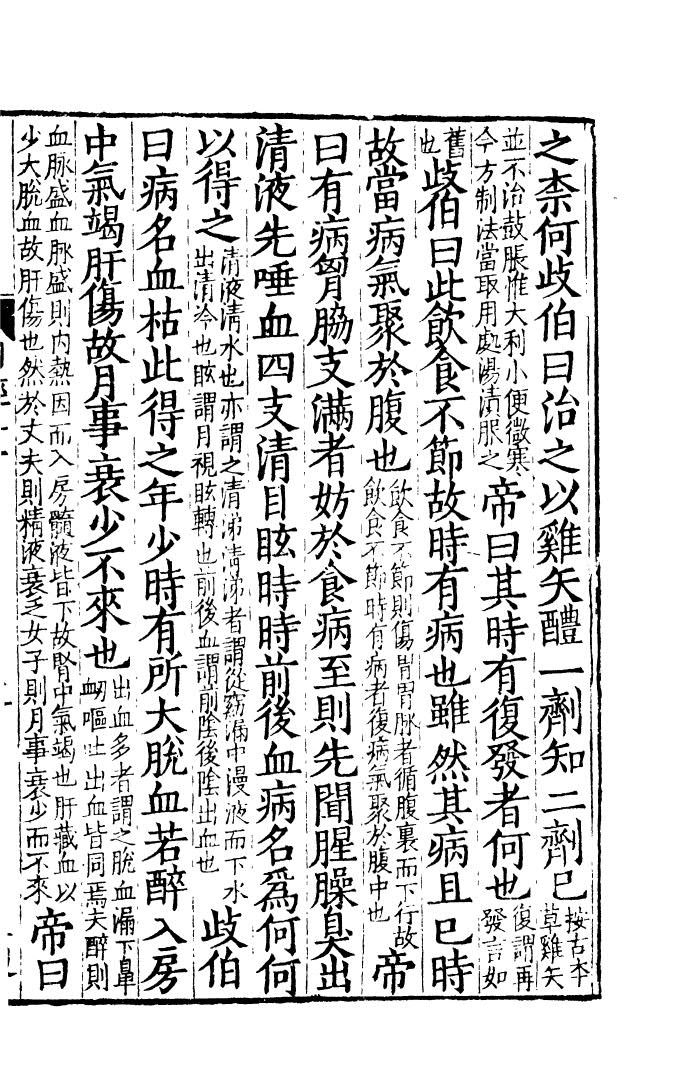 之柰何歧伯曰治之以雞矢醴一劑知二劑已按古本草雞矢
並不治鼓脹惟大利小便微寒今方制法當取用處湯漬服之帝曰其時有復發者何也復謂再發言如
舊也歧伯曰此飲食不節故時有病也雖然其病且已時
故當病氣聚於腹也飲食不節則傷胃胃脉者循腹裏而下行故飲食不節時有病者復病氣聚於腹中也帝
曰有病胷脇支滿者妨於食病至則先聞腥臊臭出
清液先唾血四支清目眩時時前後血病名爲何何
以得之清液清水也亦謂之清涕清涕者謂從窈漏中漫液而下水出清冷也眩謂目視眩轉也前後血謂前陰後陰出血也歧伯
曰病名血枯此得之年少時有所大脫血若醉入房
中氣竭肝傷故月事衰少不來也出血多者謂之脫血漏下鼻衂嘔吐出血皆同焉夫醉則
血脉盛血脉盛則內熱因而入房髓液皆下故腎中氣竭也肝藏血以少大脫血故肝傷也然於丈夫則精液衰乏女子則月事衰少而不來帝曰